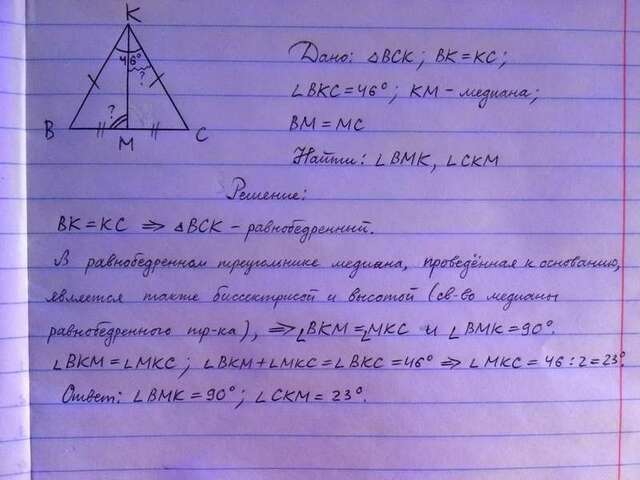 K
46°
?
?
B
M
C
Дано: △BCK; BK=KC;
∠BKC=46°; KM - медиана;
BM=MC
Найти: ∠BMK, ∠CKM
Решение:
BK=KC ⇒ △BCK - равнобедренный.
В равнобедренном треугольнике медиана, проведённая к основанию,
является также биссектрисой и высотой (св-во медианы
равнобедренного тр-ка), ⇒ ∠BKM=∠MKC и ∠BMK=90°.
∠BKM=∠MKC; ∠BKM+∠MKC=∠BKC=46° ⇒ ∠MKC=46:2=23°.
Ответ: ∠BMK=90°; ∠CKM=23°.